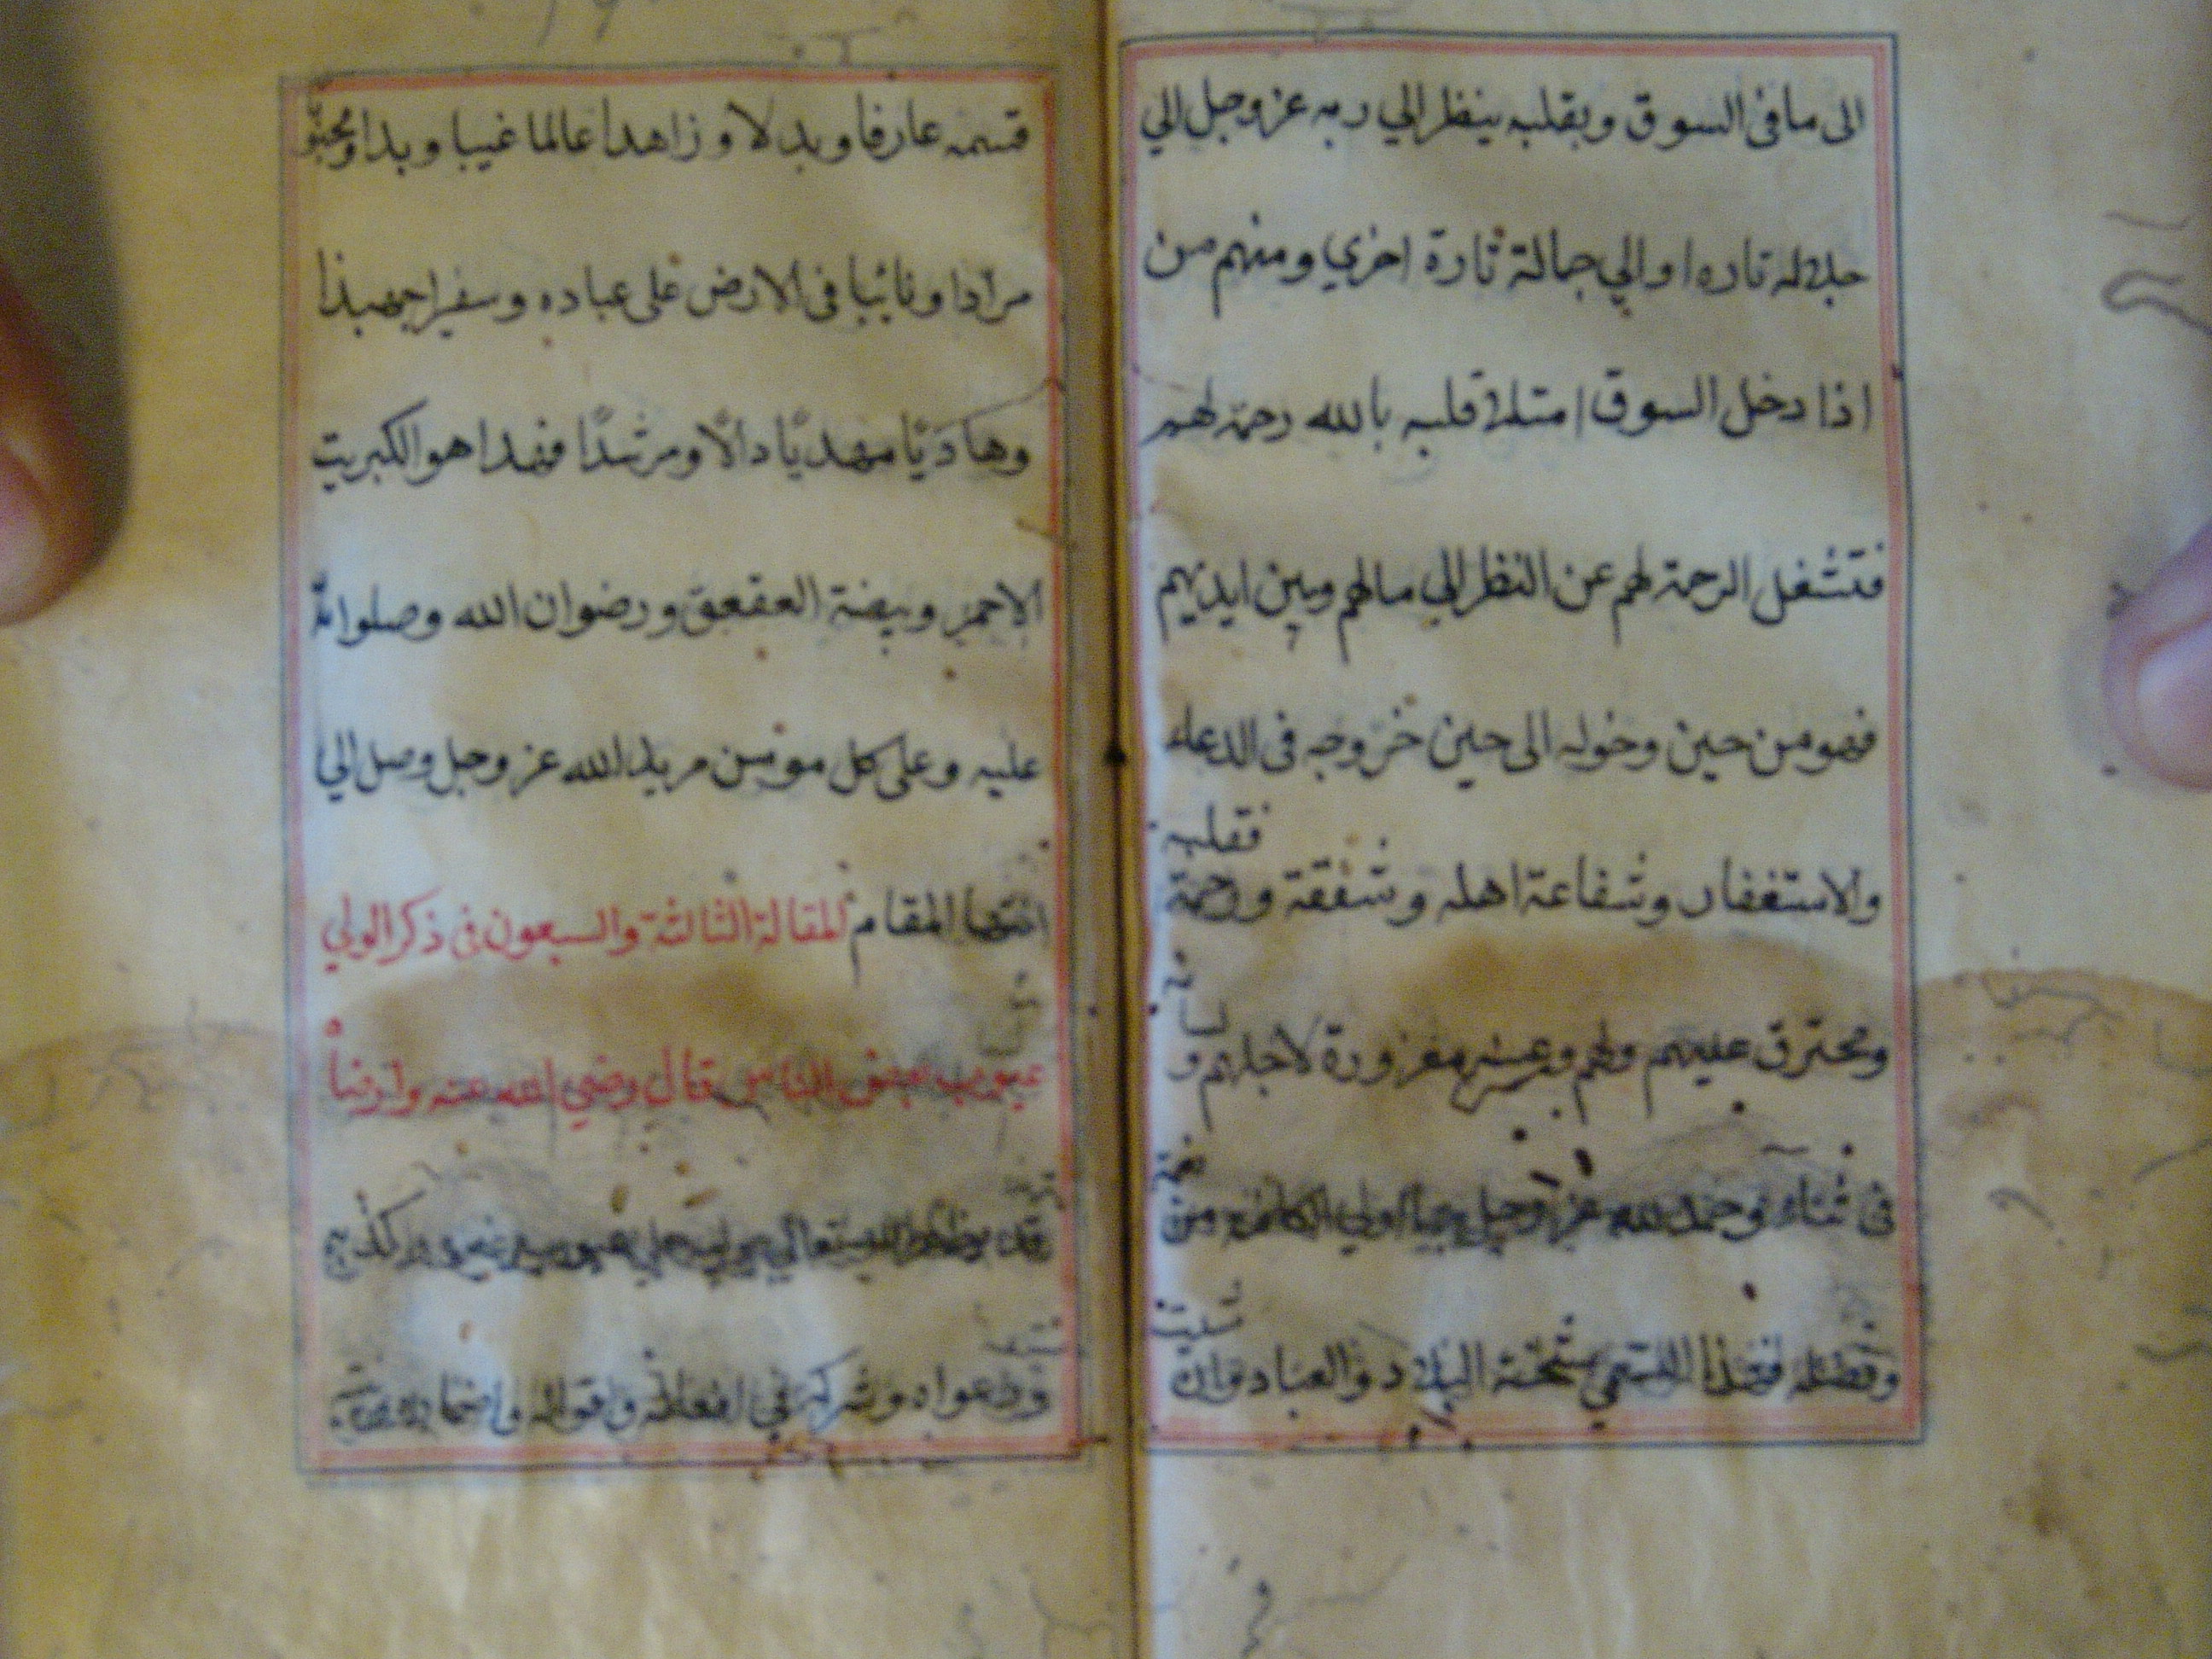 الى ما فى السوق وبقلبه ينظر الي ربه عز وجل الي
جلاله تاره او الي جمالة تارة اخري ومنهم من
اذا دخل السوق امتلا قلبه بالله رحمة لهم
فتشغل الرحمة لهم عن النظر الي مالهم وبين ايديهم
فهو من حين دخوله الى حين خروجه فى الدعاء
والاستغفار وشفاعة اهله وشفقة ورحمة فقلبه
ومحترق عليهم ولهم وعينه مغزورة لاجلهم ولسانه
فى ثناء وحمد لله عز وجل بما اولي الكافة من
وفضله فهذا السمي شحنة البلاد والعباد وان شئت
قسمه عارفا وبدلا وزاهدا عالما غيبا وبدا ومحبوبا
مرادا ونائبا فى الارض على عباده وسفيرا جهبذا
وهاديًا مهديًا دالًا ومرشدًا فهذا هو الكبريت
الاحمر وبيضة العقعق ورضوان الله وصلواته
عليه وعلى كل مومن مريد الله عز وجل وصل الي
انتها المقام المقالة الثالثة والسبعون فى ذكر الولي
عيوب بعض الناس قال رضي الله عنه وارضاه
قد الله تعالي علي عيوب غيره وكذبه
ودعواه وشركه في افعاله واقواله